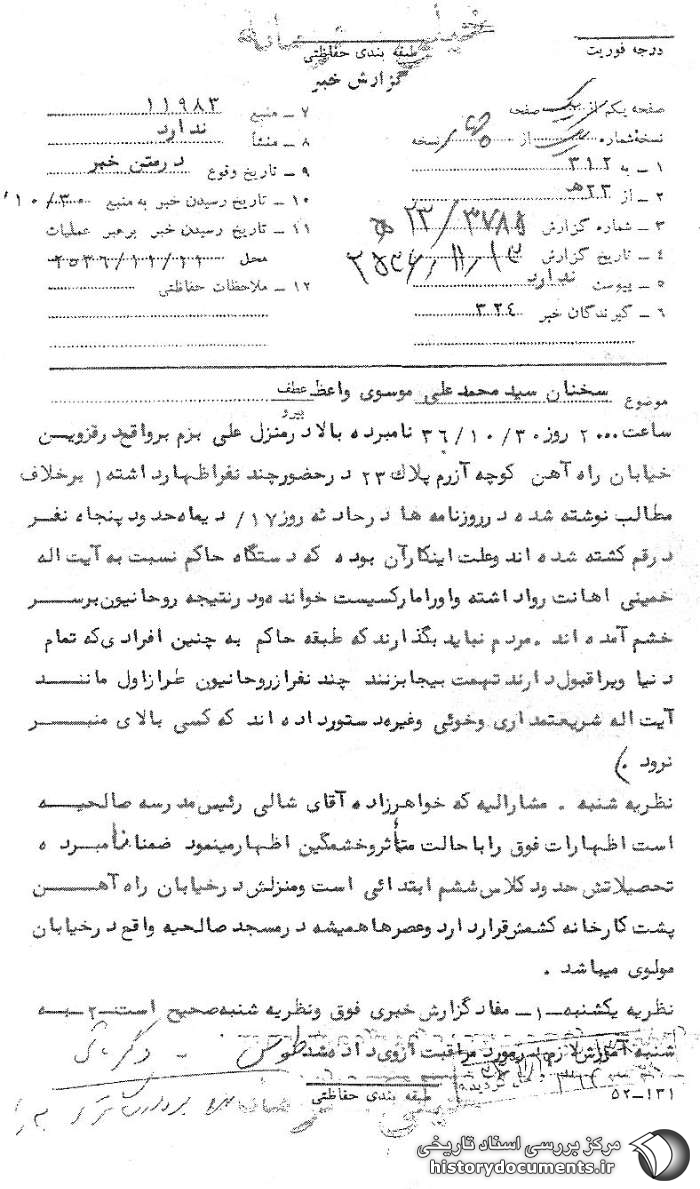 طبقه بندی حفاظتی
درجه فوریت
گزارش خبر
صفحه یکم از یک صفحه
نسخه شماره از نسخه
۱ – به ۳۱۲
۲ – از ۲۳ هـ
۳ – شماره گزارش ۲۳/۳۷۸۸ هـ
۴ – تاریخ گزارش
۵ – پیوست ندارد
۶ – گیرندگان خبر ۳۲۴
۷ – منبع ۱۱۹۸۳
۸ – منشأ ندارد
۹ – تاریخ وقوع در متن خبر
۱۰ – تاریخ رسیدن خبر به منبع ۱۰/۳۰
۱۱ – تاریخ رسیدن خبر برهبر عملیات
محل ۲۵۳۶/۱۱/۱۱
۱۲ – ملاحظات حفاظتی
موضوع سخنان سید محمد علی موسوی واعظ عطف
پیرو
ساعت ۲۰۰۰ روز ۳۶/۱۰/۳۰ نامبرده بالا در منزل علی بزم بر واقع در قزوین
خیابان راه آهن کوچه آزرم پلاک ۲۳ در حضور چند نفر اظهار داشته (برخلاف
مطالب نوشته شده در روزنامه ها در حادثه روز ۱۷/ دیماه حدود پنجاه نفر
در قم کشته شده اند و علت اینکار آن بوده که دستگاه حاکم نسبت به آیت اله
خمینی اهانت روا داشته و او را مارکسیست خوانده و در نتیجه روحانیون بر سر
خشم آمده اند . مردم نباید بگذارند که طبقه حاکم به چنین افرادی که تمام
دنیا ویرا قبول دارند تهمت بیجا بزنند چند نفر از روحانیون طراز اول ماننـد
آیت اله شریعتمداری و خوئی و غیره دستور داده اند که کسی بالای منبـر
نرود .)
نظریه شنبه . مشارالیه که خواهرزاده آقای شالی رئیس مدرسه صالحیـه
است اظهارات فوق را با حالت متأثر و خشمگین اظهار مینمود ضمنا نامبرده
تحصیلاتش حدود کلاس ششم ابتدائی است و منزلش در خیابان راه آهـن
پشت کارخانه کشمش قرار دارد و عصرها همیشه در مسجد صالحیه واقع در خیابان
مولوی میباشد .
نظریه یکشنبه – ۱ – مفاد گزارش خبری فوق و نظریه شنبه صحیح است – ۲ – به
شنبه آموزش لازم در مورد مراقبت از وی داده شد
طبقه بندی حفاظتی
۵۲–۱۳۱
مرکز بررسی اسناد تاریخی
historydocuments.ir